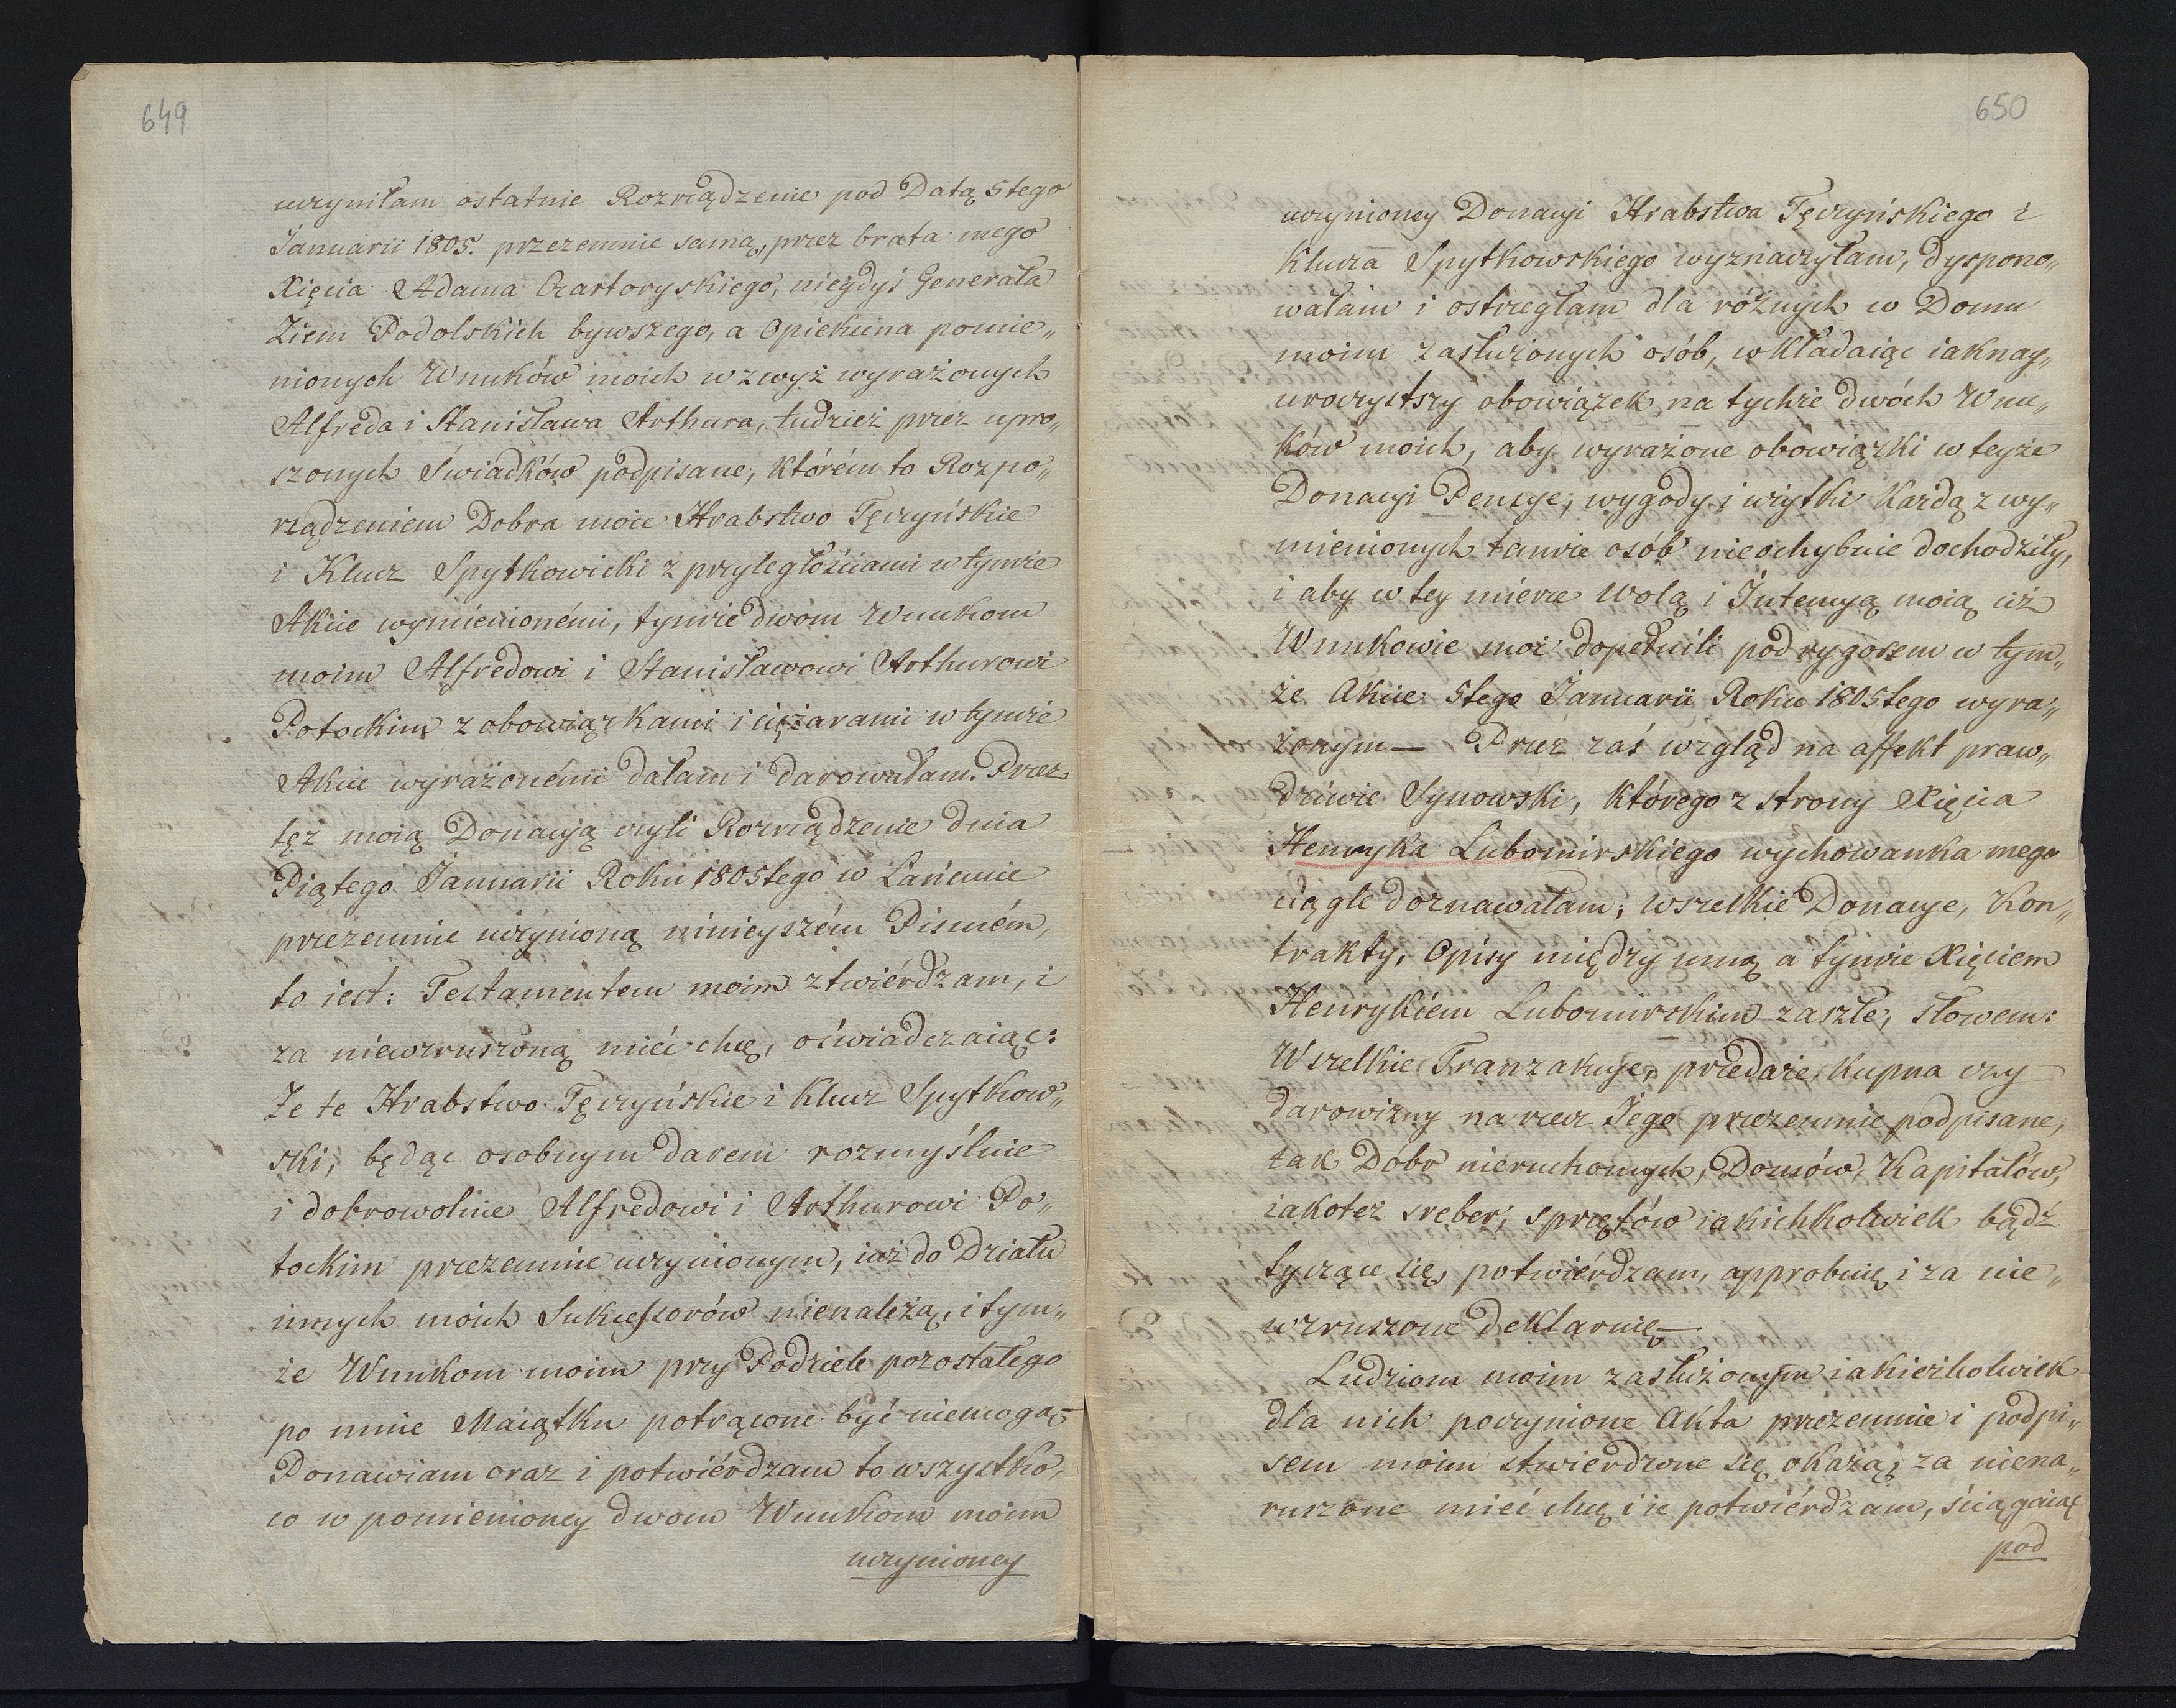 649
uczyniłam ostatnie Rozrządzenie pod Datą 5tego
Januarii 1805. przezemnie samą, przez brata mego
Xięcia Adama Czartoryskiego, niegdyś Generała
Ziem Podolskich bywszego, a Opiekuna pomie„
nionych Wnuków moich wzwyż wyrażonych
Alfreda i Stanisława Arthura, tudzież przez upro„
szonych Świadków podpisane, którém to Rozpo„
rządzeniem Dobra moie Hrabstwo Tęczyńskie
i Klucz Spytkowicki z przyległościami w tymże
Akcie wymienionémi, tymże dwom Wnukom
moim Alfredowi i Stanisławowi Arthurowi
Potockim z obowiązkami i ciężarami w tymże
Akcie wyrażonémi dałam i darowałam. Przez
tęż moią Donacyą czyli Rozrządzenie dnia
Piątego Januarii Roku 1805tego w Łańcucie
przezemnie uczynioną ninieyszém Pismém,
to iest: Testamentem moim ztwiérdzam, i
za niewzruszoną mieć chcę, oświadczaiąc:
Że te Hrabstwo Tęczyńskie i Klucz Spytkow„
ski, będąc osobnym darem rozmyślnie
i dobrowolnie Alfredowi i Arthurowi Po„
tockim przezemnie uczynionym, iuż do Działu
innych moich Sukcessorów nienależą, i tym„
że Wnukom moim przy Podziele pozostałego
po mnie Maiątku potrącone być niemogą–
Ponawiam oraz i potwiérdzam to wszystko,
co w pomienioney dwom Wnukom moim
uczynioney
650
uczynioney Donacyi Hrabstwa Tęczyńskiego i
Klucza Spytkowskiego wyznaczyłam, dyspono„
wałam i ostrzegłam dla różnych w Domu
moim zasłużonych osób, wkładaiąc iaknay„
uroczystszy obowiązek na tychże dwóch Wnu„
ków moich, aby wyrażone obowiązki w teyże
Donacyi Pensye, wygody i użytki Każdą z wy„
mienionych tamże osób nieochybnie dochodziły,
i aby w tey mierze wolą i Intencyą moią ciż
Wnukowie moi dopełnili pod rygorem w tym„
że Akcie 5tego Januarii Roku 1805tego wyra„
żonym — Przez zaś wzgląd na affekt praw„
dziwie Synowski, którego z strony Xięcia
Henryka Lubomirskiego wychowanka mego
ciągle doznawałam, wszelkie Donacye, Kon„
trakty, Opisy między mną a tymże Xięciem
Henrykiem Lubomirskim zaszłe, słowem:
Wszelkie Tranzakcye, przedaże, kupna czy
darowizny na rzecz Jego przezemnie podpisane,
tak Dóbr nieruchomych, Domów, Kapitałów,
iakoteż sreber, sprzętów iakichkolwiek bądź
tyczące się, potwiérdzam, approbuię i za nie„
wzruszone deklaruię—
Ludziom moim zasłużonym iakieżkolwiek
dla nich poczynione Akta przezemnie i podpi„
sem moim stwierdzone się okażą, za niena„
ruszone mieć chcę i ie potwiérdzam, ściągaiąc
pod